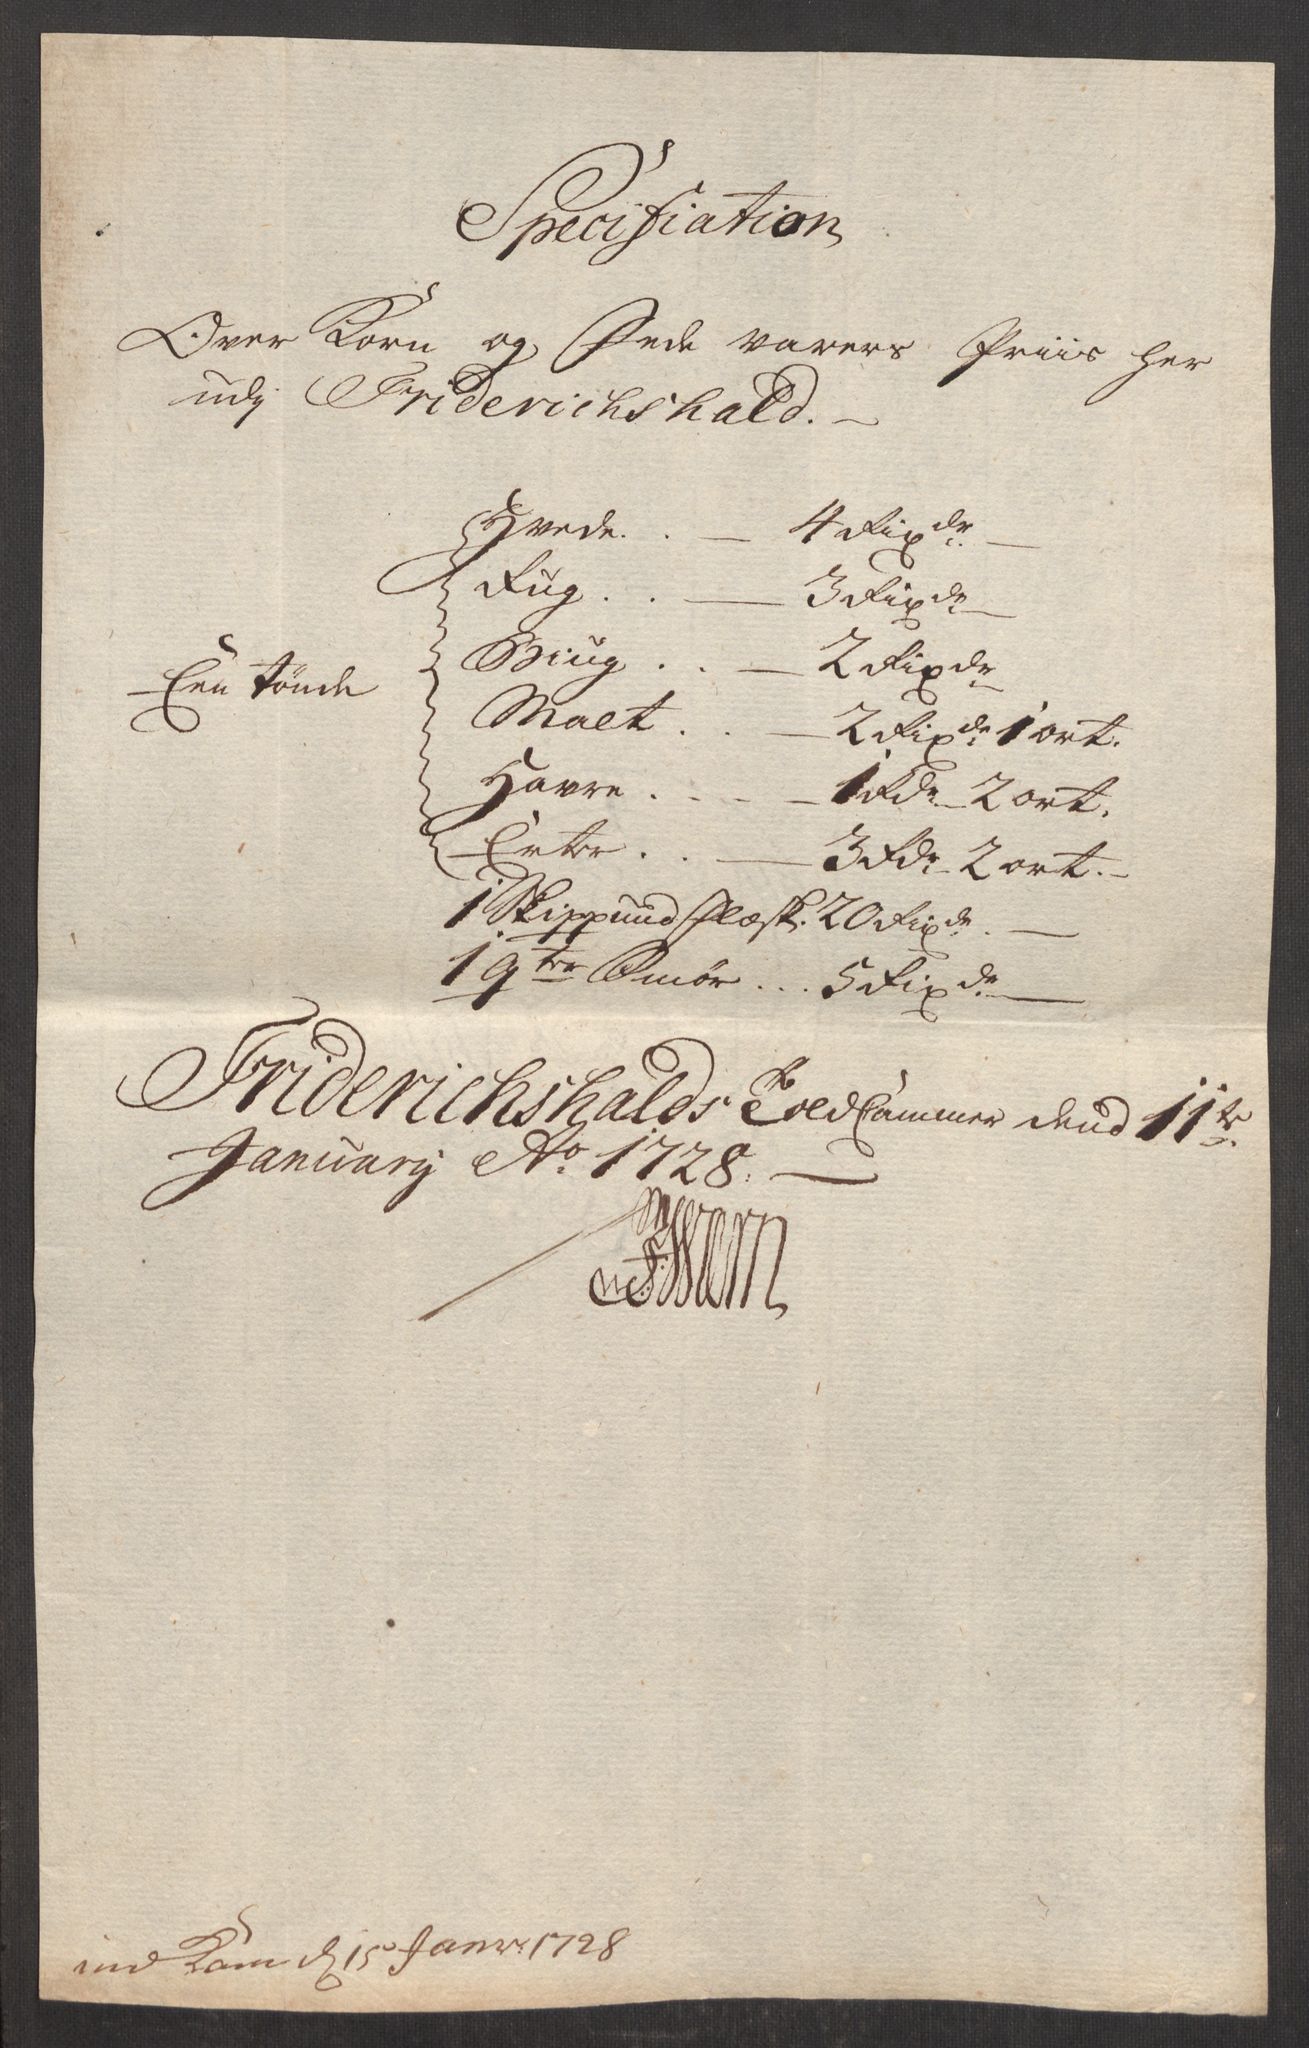 Specification
Over Korn og Fede varers Priis her
udj Friderichshald.
Hvede . . 4 Rixdr
Rug . . 3 Rixdr
Biug . . 2 Rixdr
Een tönde
Malt . . 2 Rixdr 1 ort.
Havre . . . 1 Rdr 2 ort.
Erter . . 3 Rdr 2 ort.
1 Skippund Flesk. 20 Rixdr
1 qter Smör . . . 5 Rixdr
Friderichshalds Told Cammer dend 11te
January Ao 1728.
Worn
ind Kom d 15 Janr. 1728